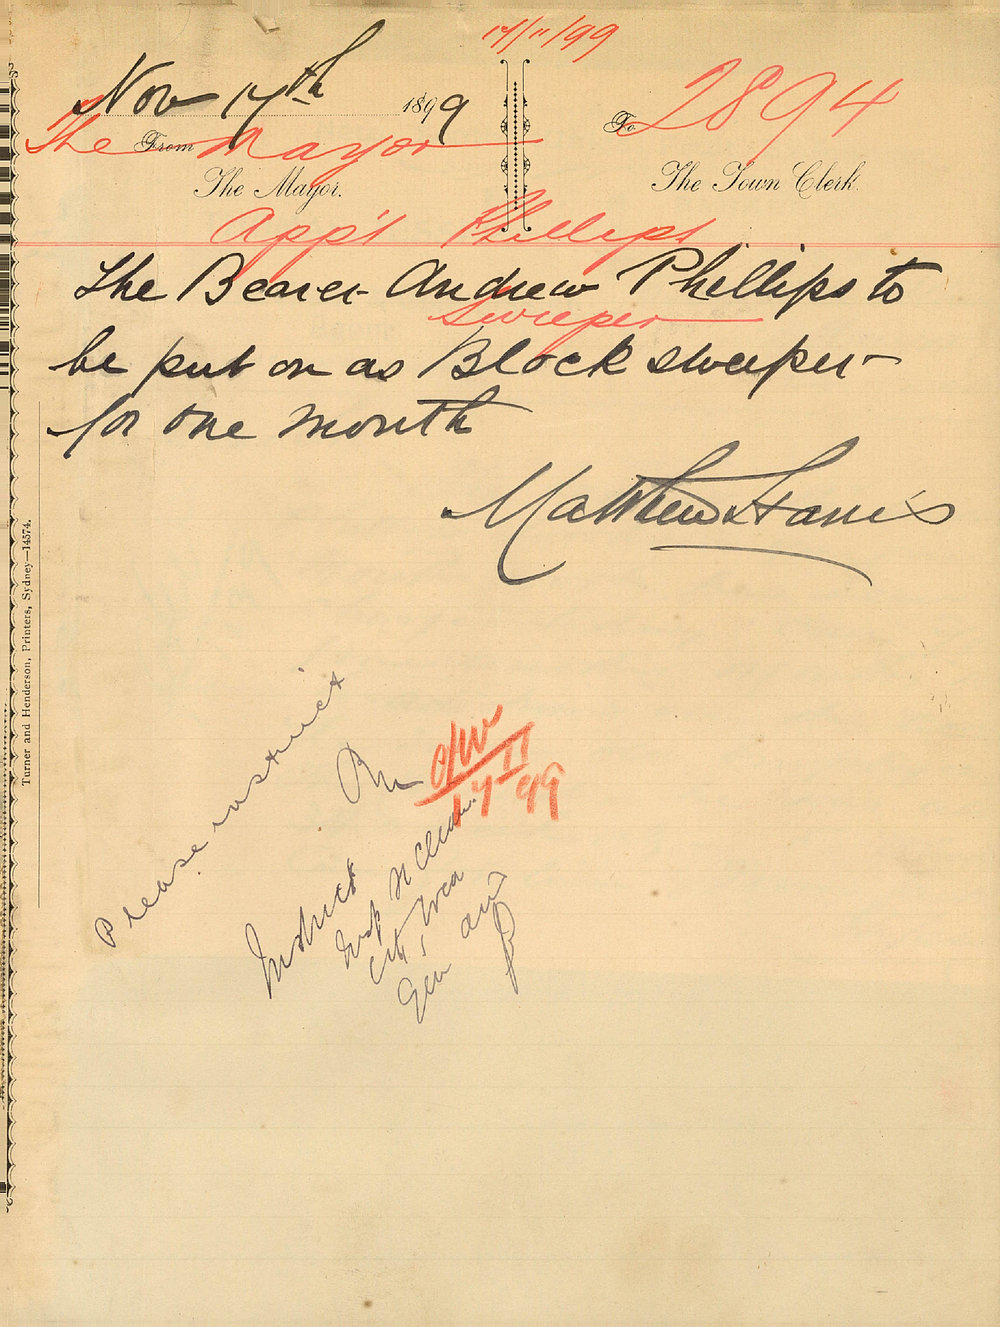 17/11/99
Nov 17th 1899
To 2894
The From Mayor
The Mayor.
The Town Clerk.
App't Phillips
The Bearer Andrew Phillips to
Sweeper
be put on as Block sweeper
for one month
Matthew Harris
Please instruct
c/w
17 11 99
Instruct
Turner and Henderson, Printers, Sydney—14574.